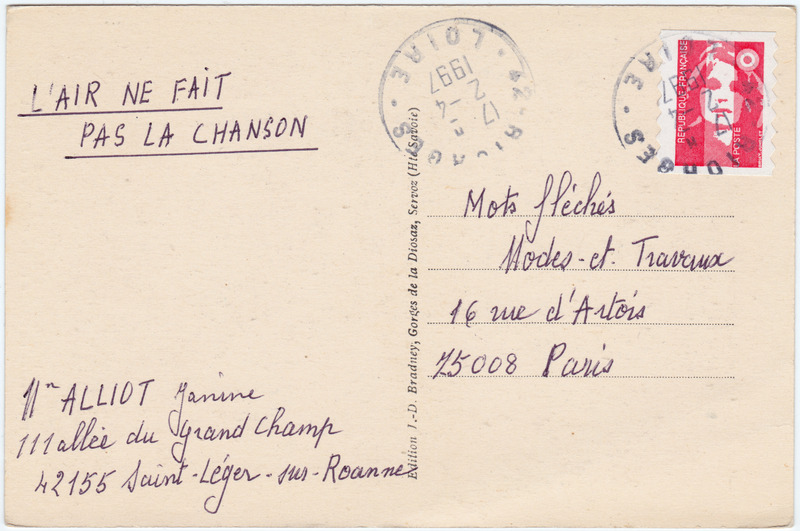 L'AIR NE FAIT
PAS LA CHANSON
Mme ALLIOT Janine
111 allée du Grand Champ
42155 Saint-Léger-sur-Roanne
Edition J.-D. Bradney, Gorges de la Diosaz, Servoz (Hte Savoie)
LOIRE
17 2
-4
1997
RÉPUBLIQUE FRANÇAISE
LA POSTE
Mots fléchés
Modes-et Travaux
16 rue d'Artois
75008 Paris